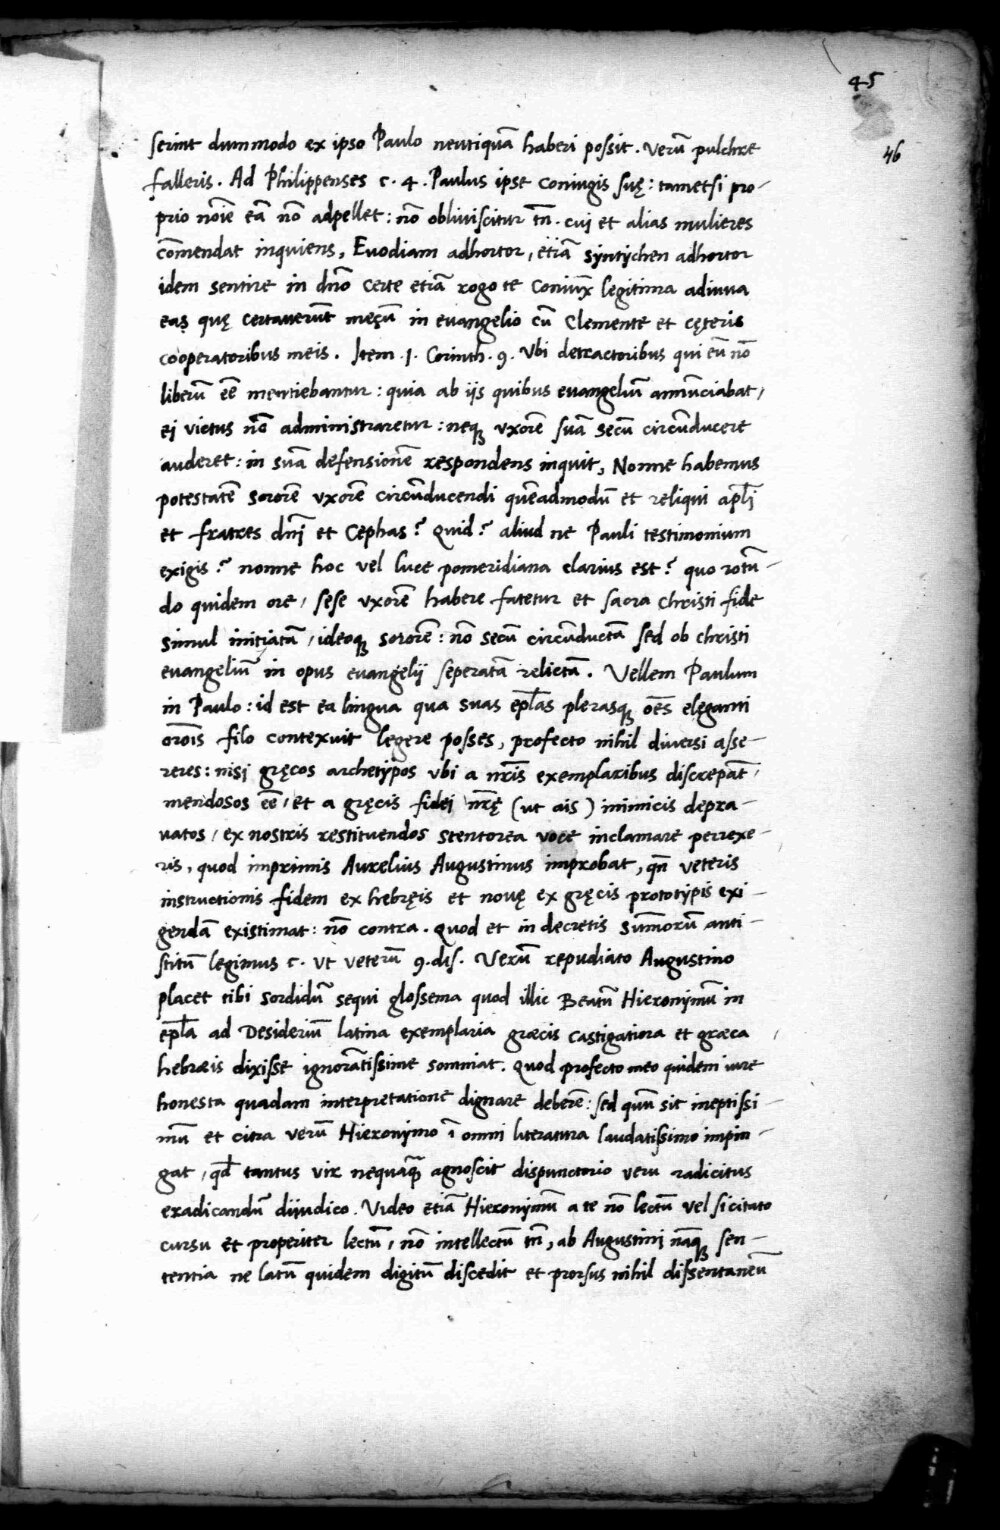 45
46
serint dummodo ex ipso Paulo neutiquā haberi possit. Verū pulchre
falleris. Ad Philippenses c. 4. Paulus ipse coniugis suę: tametsi pro-
prio noīe eā nō adpellet: nō obliuiscitur tn̄. cui et alias mulieres
cōmendat inquiens, Euodiam adhortor, etiā syntychen adhortor
idem sentire in dn̄o certe etiā rogo te coniūx legitima adiuua
eas quę certauerūt mecū in euangelio cū Clemente et cęteris
cooperatoribus meis. Item .1. Corinth. 9. Vbi detractoribus qui eū nō
liberū eē mentiebantur: quia ab iis quibus euangeliū annūciabat,
ei victus nō administraretur: neq; vxorē suā secū circūducere
auderet: in suā defensionē respondens inquit, Nonne habemus
potestatē sororē vxorē circūducendi quēadmodū et reliqui apl̄i
et fratres dn̄i et Cephas? Quid? aliud ne Pauli testimonium
exigis? nonne hoc vel luce pomeridiana clarius est? quo rotū-
do quidem ore, sese vxorē habere fatetur et sacra christi fide
simul initiatā, ideoq; sororē: nō secū circūductā sed ob christi
euangeliū in opus euangelii seperatā relictā. Vellem Paulum
in Paulo: id est ea lingua qua suas ep̄las plerasq; oēs eleganti
orōis filo contexuit legere posses, profecto nihil diuersi asse-
reres: nisi gręcos archetypos vbi a nr̄is exemplaribus discrepāt,
mendosos eē, et a gręcis fidei nr̄ę (ut ais) inimicis depra-
uatos, ex nostris restituendos stentorea voce inclamare perrexe-
ris, quod imprimis Aurelius Augustinus improbat, qn̄ veteris
instructionis fidem ex hebręis et nouę ex gręcis prototypis exi-
gendā existimat: nō contra. Quod et in decretis summorū anti-
stitū legimus c. ut veterū 9. dis. Verū repudiato Augustino
placet tibi sordidū sequi glossema quod illic Beatū Hieronymū in
ep̄la ad Desideriū latina exemplaria græcis castigatiora et græca
hebræis dixisse ignorātissime somniat. Quod profecto meo quidem iure
honesta quadam interpretatione dignare deberē: sed quū sit ineptissi-
mū et citra verū Hieronymo ī omni literatura laudatissimo impin-
gat, qd̄ tantus vir nequaq̄ agnoscit dispunctorio veru radicitus
eradicandū diiudico. Video etiā Hieronymū a te nō lectū vel si citato
cursu et properiter lectū, nō intellectū tn̄, ab Augustini nāq; sen-
tentia ne latū quidem digitū discedit et prorsus nihil dissentaneū